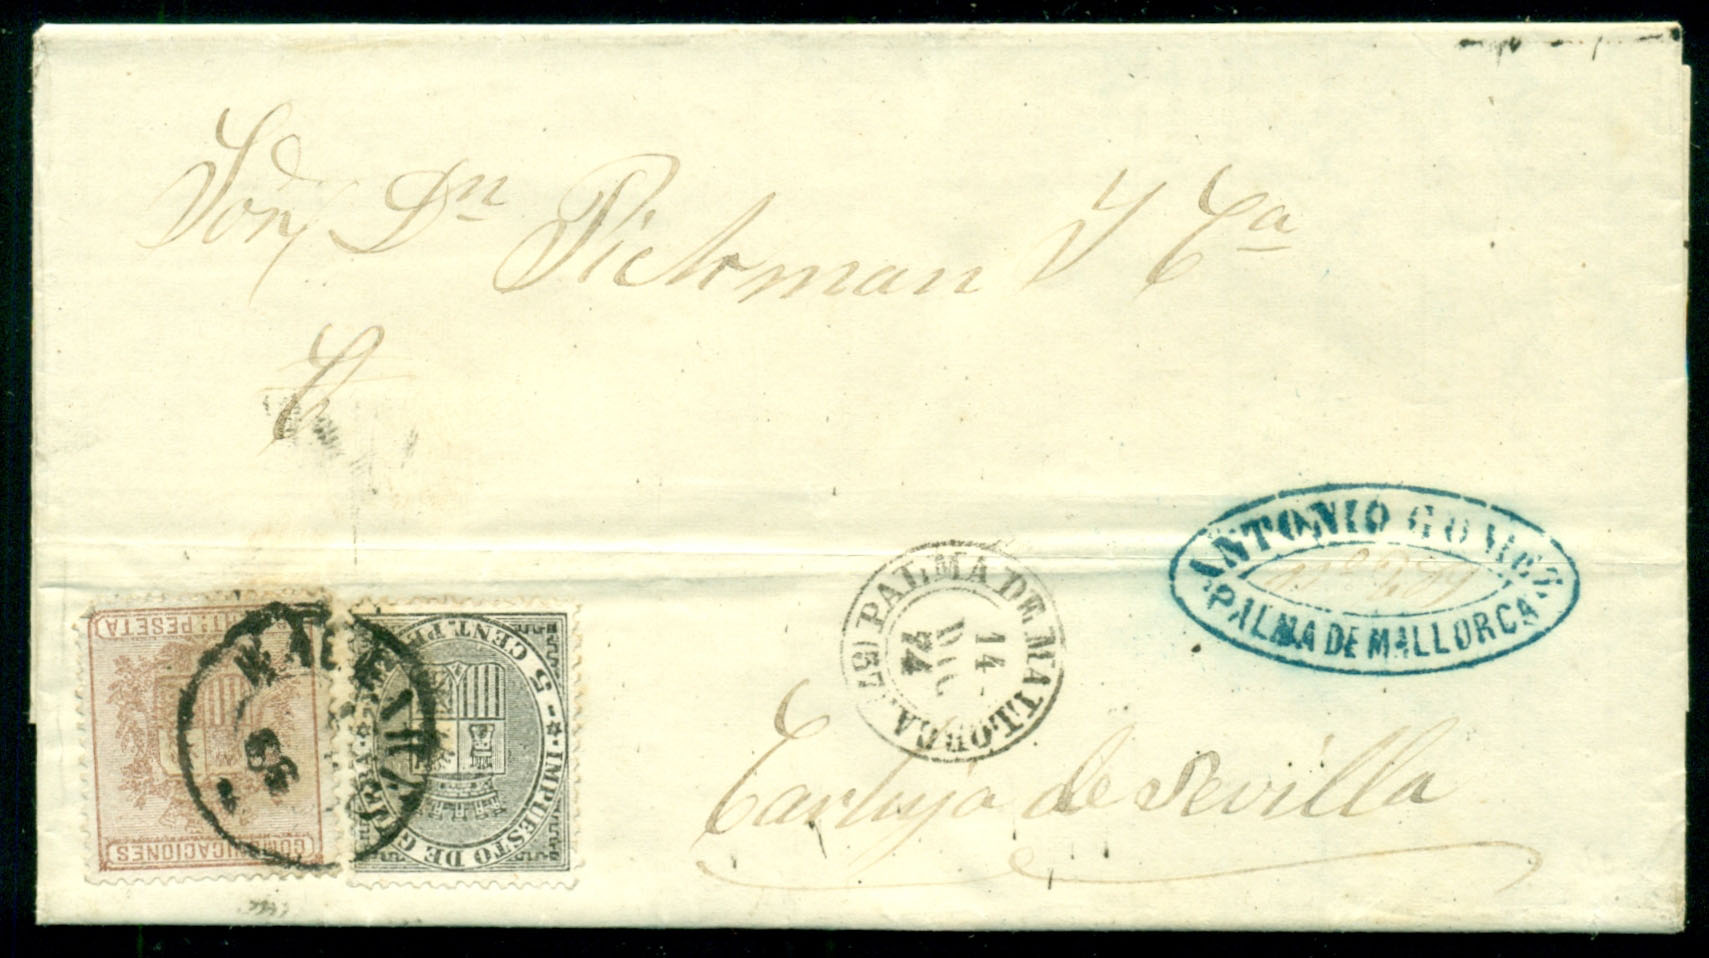 Sor Dn Pickman Y Ca
ANTONIO GOMES
PALMA DE MALLORCA
PALMA DE MALLORCA.
14
DIC
74
Cartuja de Sevilla
1ª PESETA
COMUNICACIONES
5 CENT. PE
IMPUESTO DE G